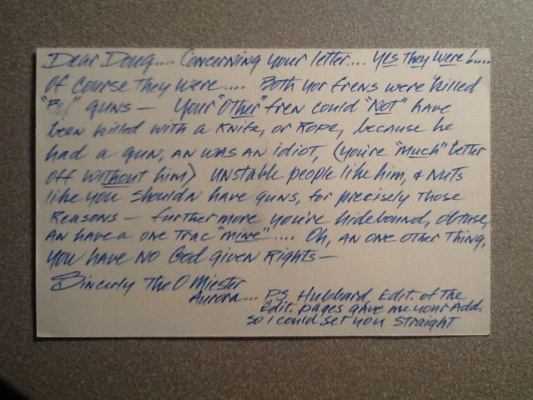 Dear Doug.... Concerning your letter.... Yes they were!....
Of course they were.... Both yor frens were killed
"By" guns — Your "other" fren could "Not" have
been killed with a knife, or Rope, because he
had a gun, an was an idiot, (you're "much" better
off without him) Unstable people like him, & Nuts
like you shouldn have guns, for precisely those
Reasons — furthermore you're hidebound, obtuse,
an have a one trac "mine".... Oh, an one other thing,
you have no God given Rights —
Sincurly The O'Miester
Aurora... P.S. Hubbard, Edit. of the
Edit. pages gave me your Add.
so i could set you straight